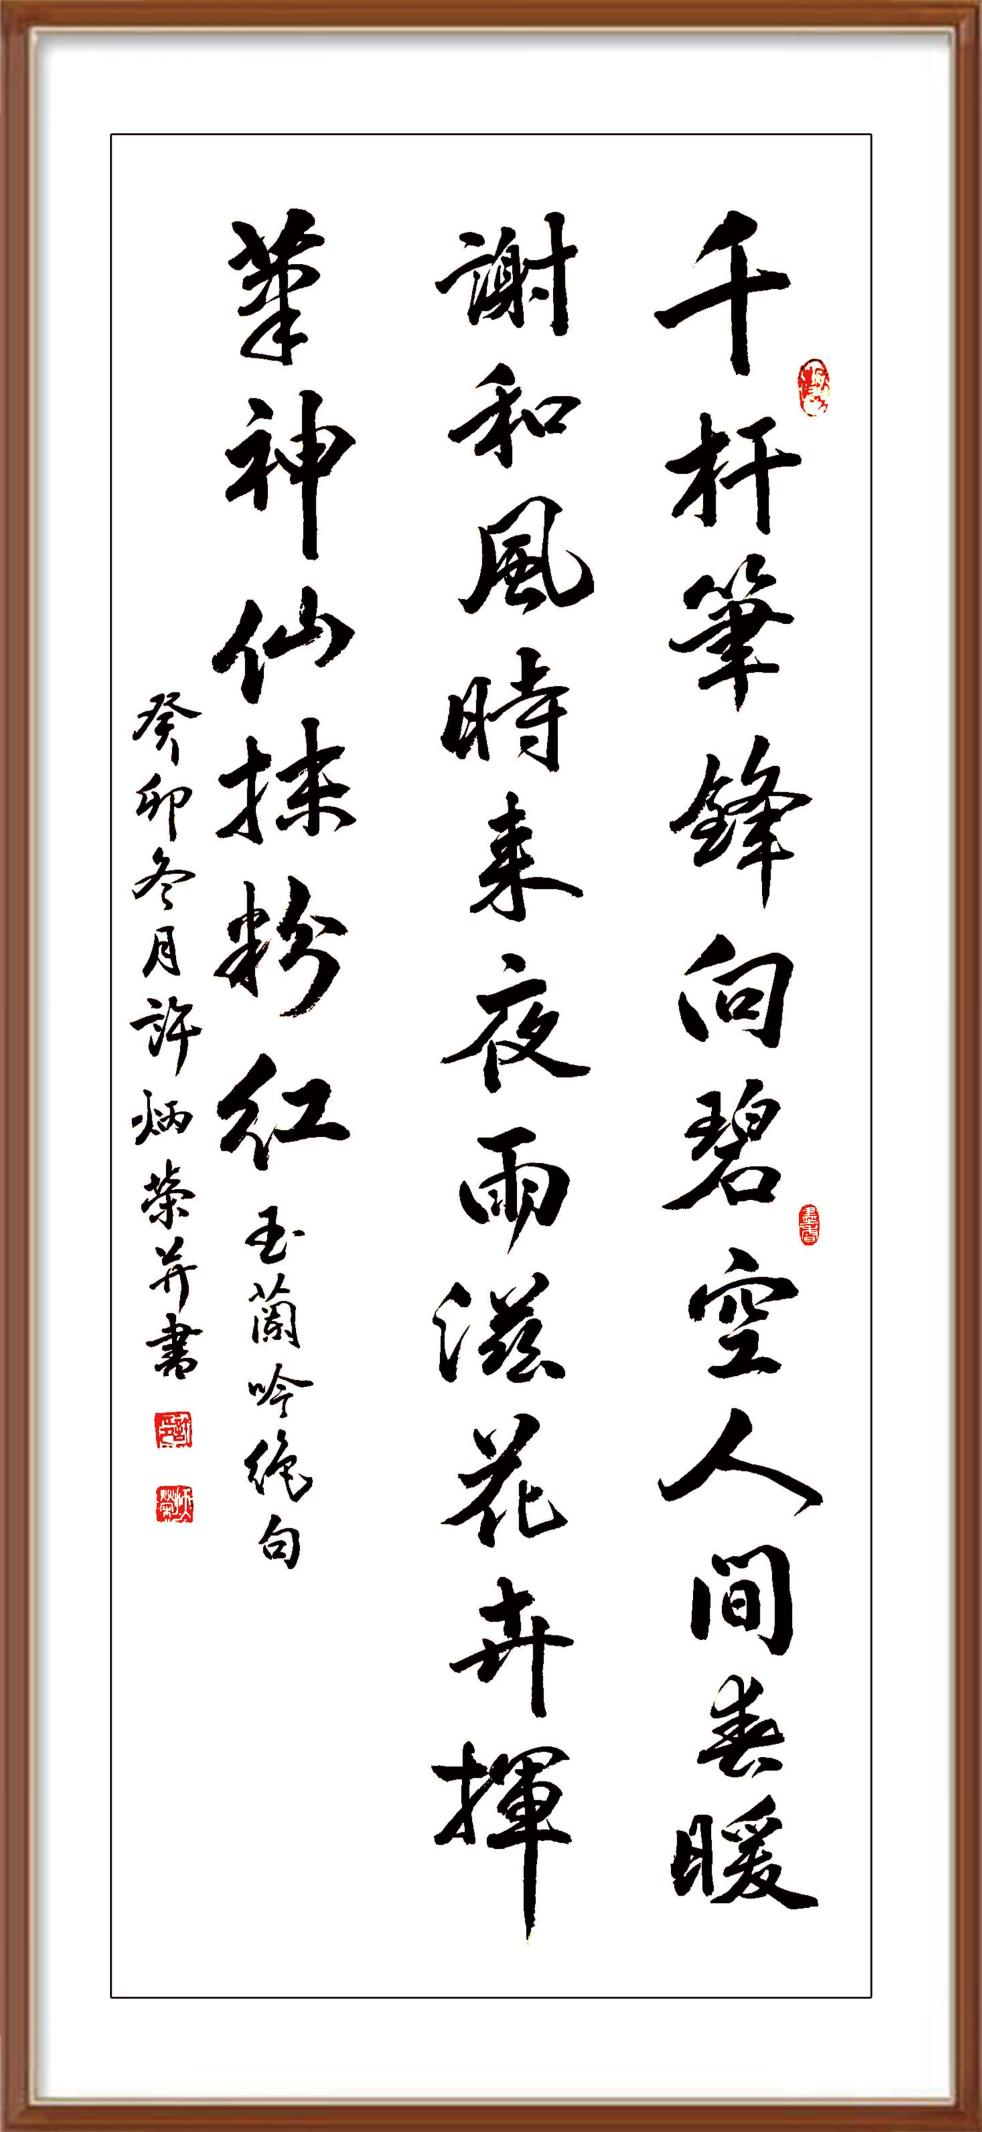 千杆筆鋒向碧空人間春暖
謝和風時来夜雨滋花卉揮
筆神仙抹粉紅 玉蘭吟絶句
癸卯冬月許炳榮并書
墨香
炳榮